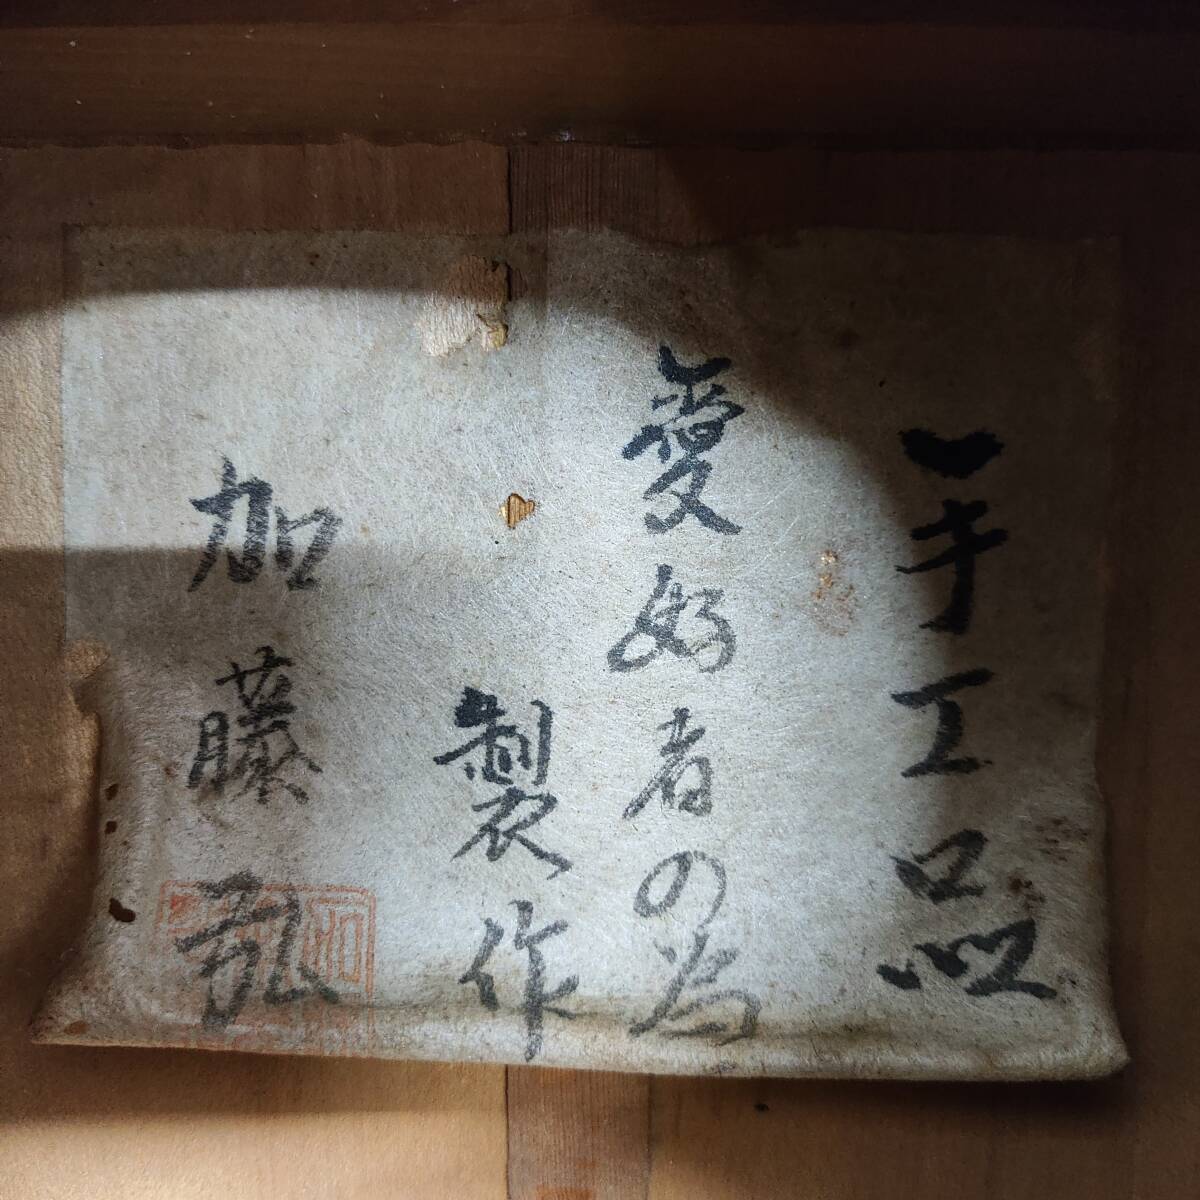 一手工品
愛好者の為
製作
加藤